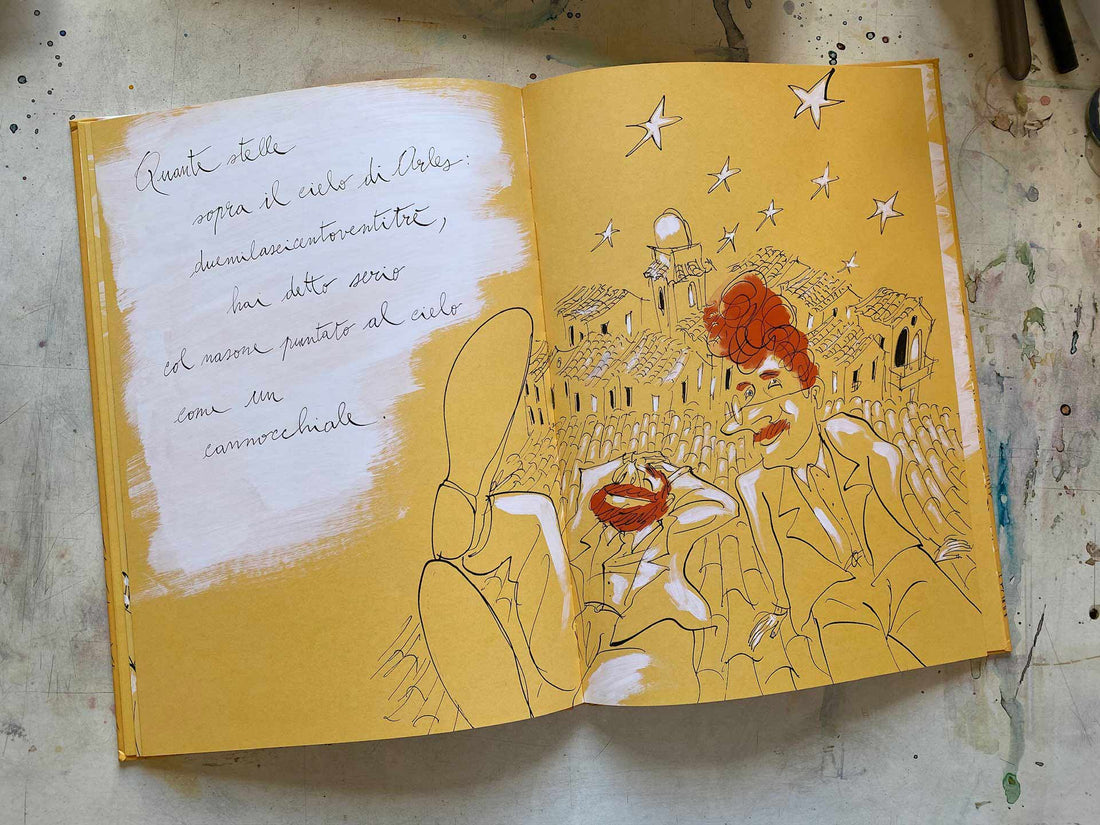 Quante stelle
sopra il cielo di Arles:
duemilaseicentoventitrè,
hai detto serio
col nasone puntato al cielo
come un
cannocchiale.